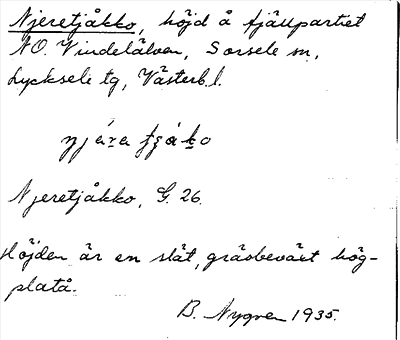 Njeretjåkko, höjd å fjällpartiet
NO. Vindelälven, Sorsele sn,
Lycksele tg, Västerb. l.
Njeretjåkko, G. 26.
Höjden är en slät, gräsbeväxt hög-
platå.
B. Nygren 1935.